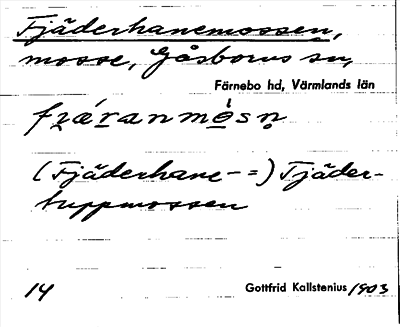 Fjäderhanemossen,
mosse, Gåsborns sn,
Färnebo hd, Värmlands län
(Fjäderhane- =) Tjäder-
tuppmossen
14 Gottfrid Kallstenius 1903